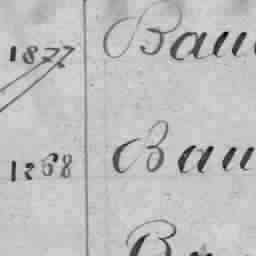 1877 Bau
1268 Bau
Ba